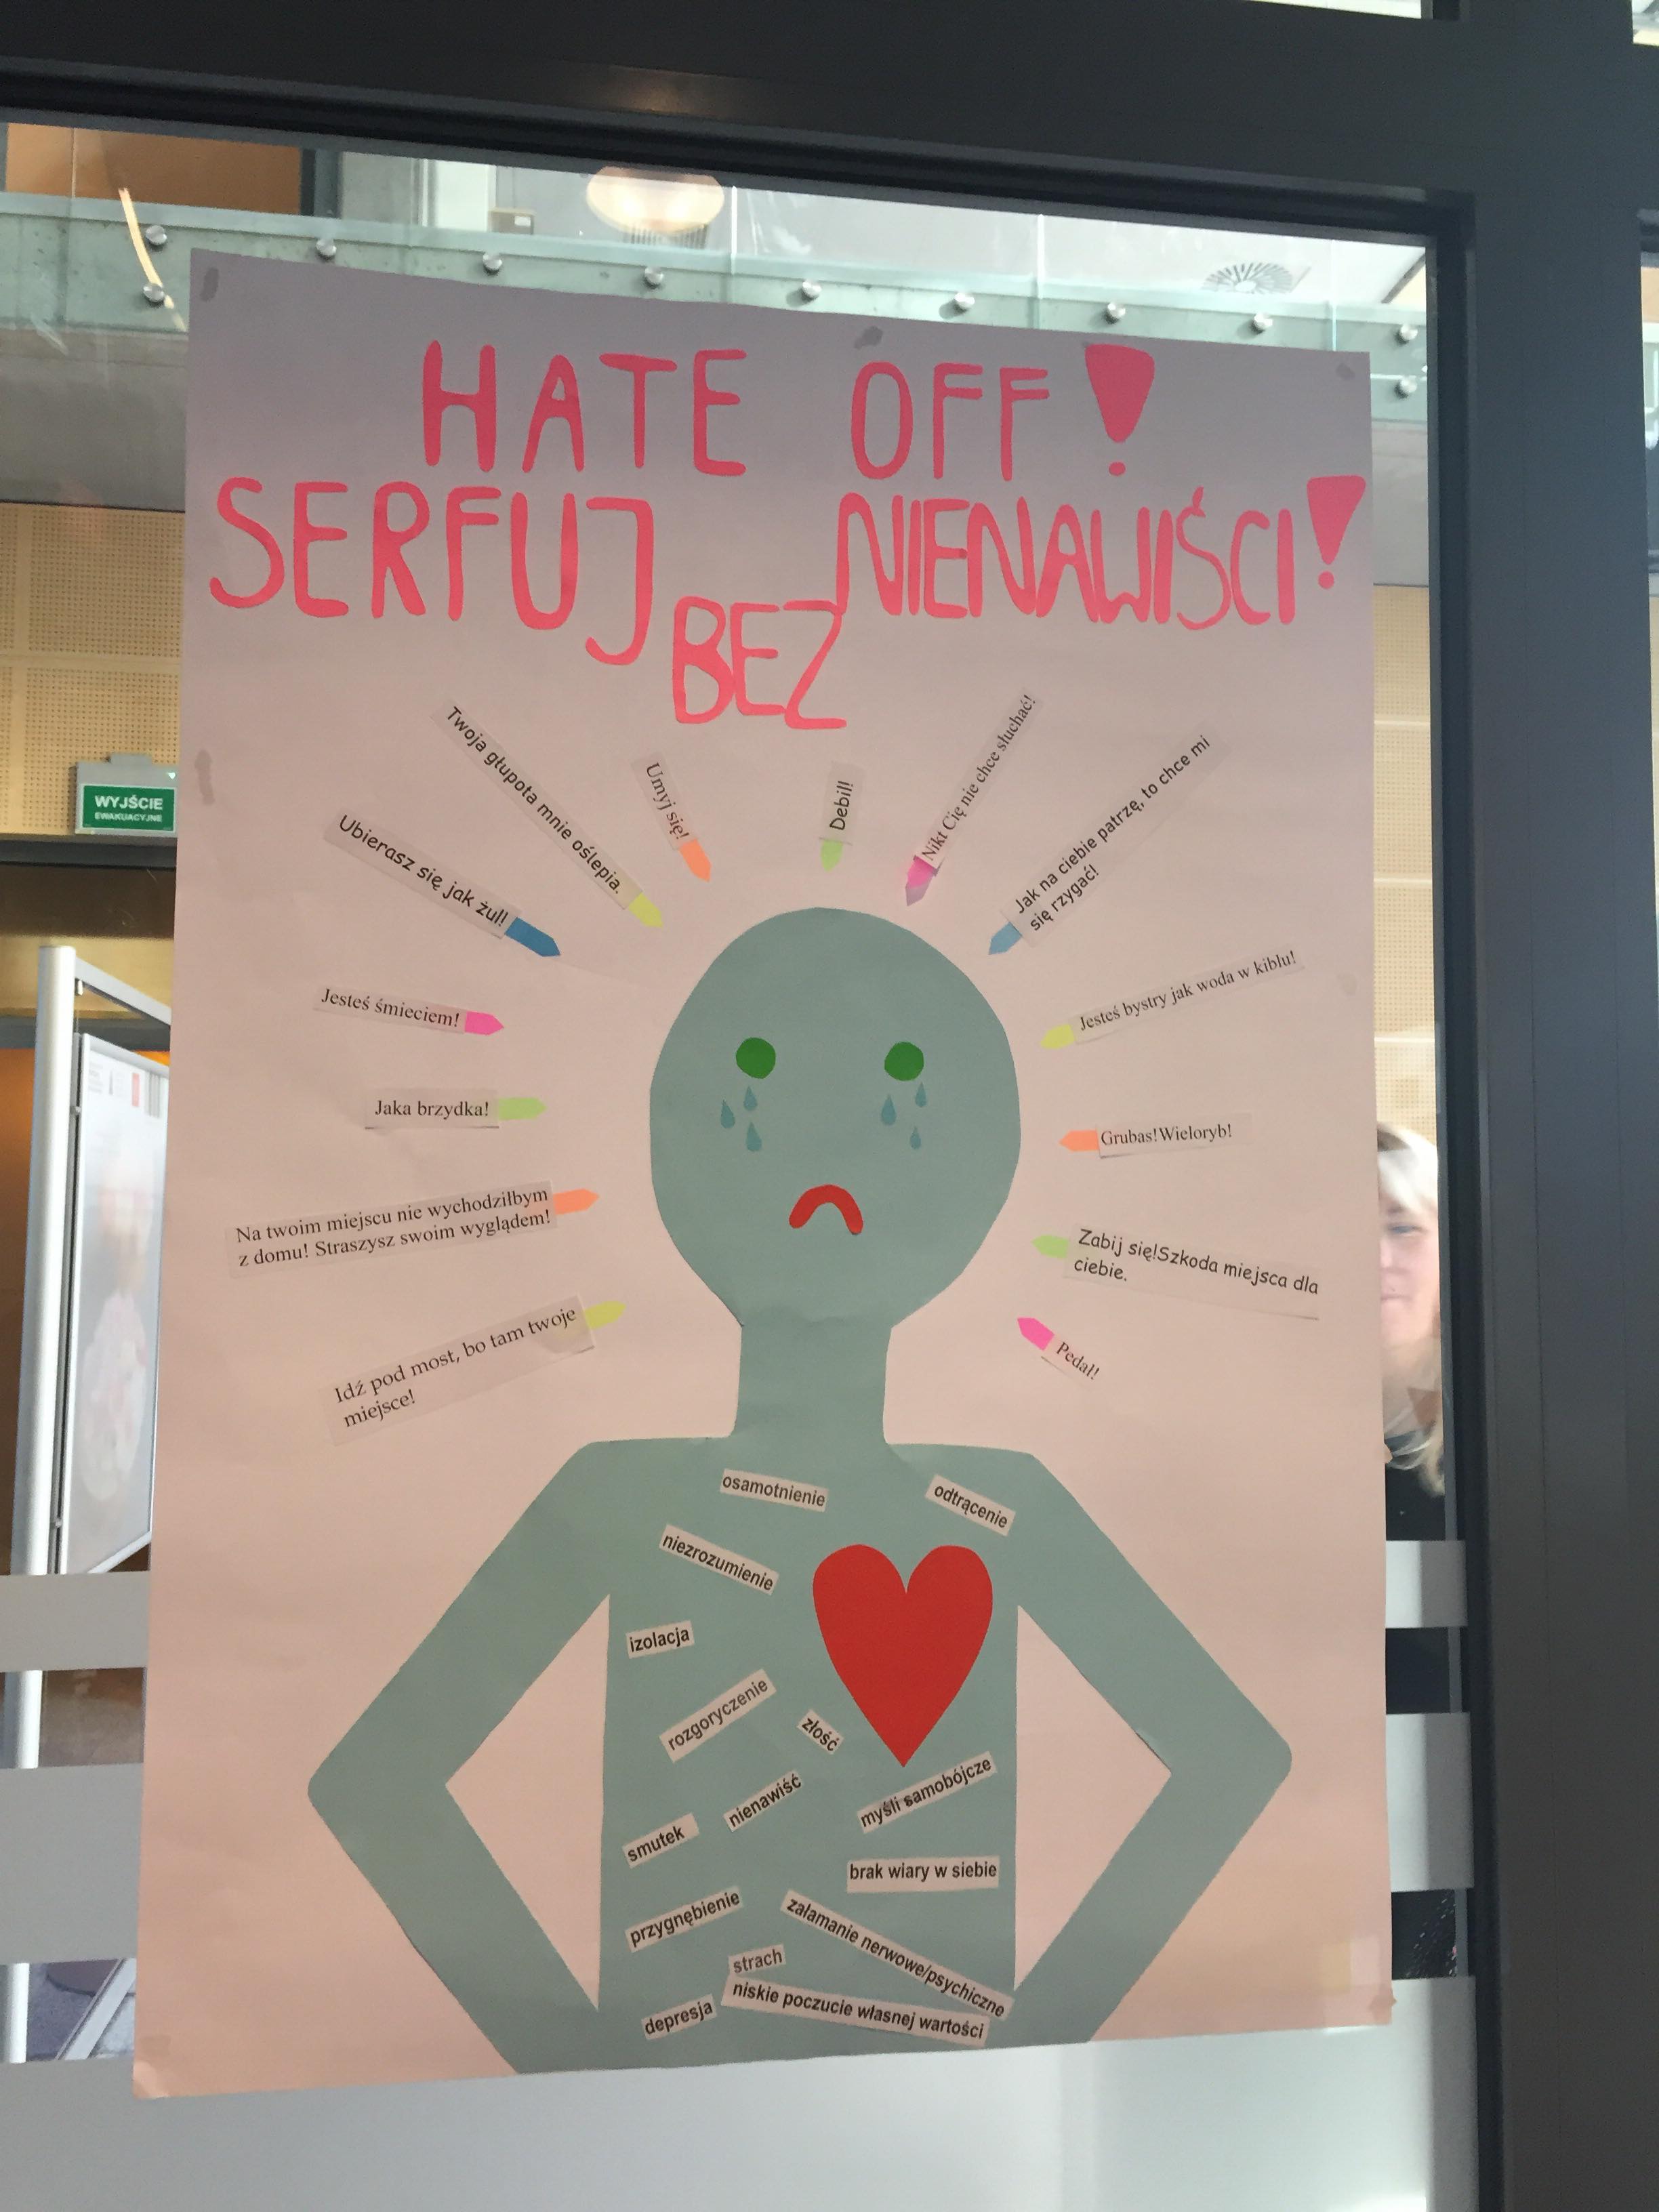 HATE OFF!
SERFUJ BEZ NIENAWIŚCI!
WYJŚCIE
EWAKUACYJNE
Twoja głupota mnie oślepia.
Umyj się!
Debil!
Nikt Cię nie chce słuchać!
Jak na ciebie patrzę, to chce mi
się rzygać!
Ubierasz się jak żul!
Jesteś śmieciem!
Jesteś bystry jak woda w kiblu!
Jaka brzydka!
Grubas!Wieloryb!
Na twoim miejscu nie wychodziłbym
z domu! Straszysz swoim wyglądem!
Zabij się!Szkoda miejsca dla
ciebie.
Idź pod most, bo tam twoje
miejsce!
Pedał!
osamotnienie
odtrącenie
niezrozumienie
izolacja
rozgoryczenie
złość
nienawiść
myśli samobójcze
smutek
brak wiary w siebie
przygnębienie
załamanie nerwowe/psychiczne
strach
niskie poczucie własnej wartości
depresja